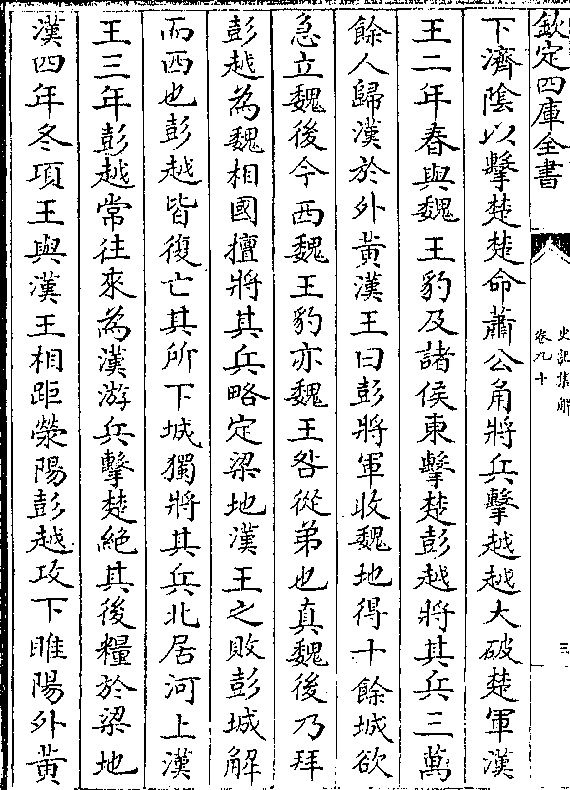 欽定四庫全書
史記集解
卷九十
三
下濟陰以擊楚楚命蕭公角將兵擊越越大破楚軍漢
王二年春與魏王豹及諸侯東擊楚彭越將其兵三萬
餘人歸漢於外黃漢王曰彭將軍收魏地得十餘城欲
急立魏後今西魏王豹亦魏王咎從弟也真魏後乃拜
彭越為魏相國擅將其兵略定梁地漢王之敗彭城解
而西也彭越皆復亡其所下城獨將其兵北居河上漢
王三年彭越常往來為漢游兵擊楚絕其後糧於梁地
漢四年冬項王與漢王相距滎陽彭越攻下睢陽外黃